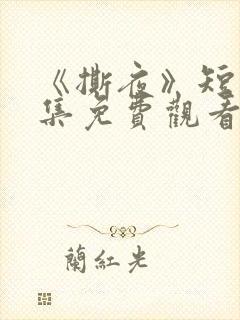 《撕夜》短
集免費觀看
蘭紅光